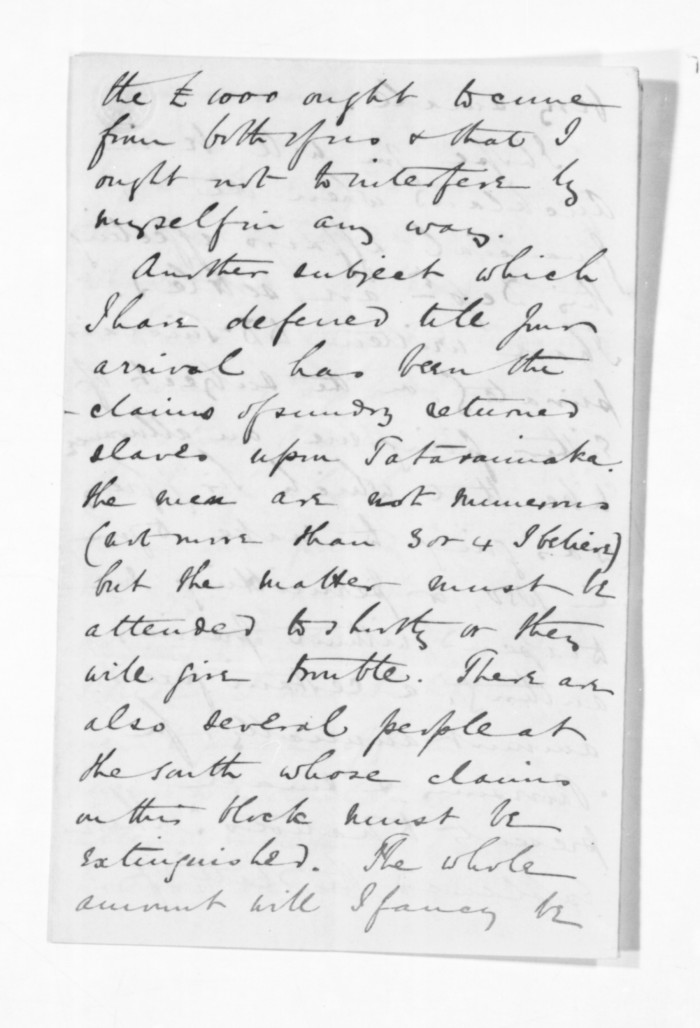 the £1000 ought to come
from both of us & that I
ought not to interfere by
myself in any way.
Another subject which
I have deferred till your
arrival has been the
claims of sundry returned
slaves upon Tataraimaka.
the men are not numerous
(not more than 3 or 4 I believe)
but the matter must be
attended to shortly or they
will give trouble. There are
also several people at
the south whose claims
on this block must be
extinguished. The whole
amount will I fancy be